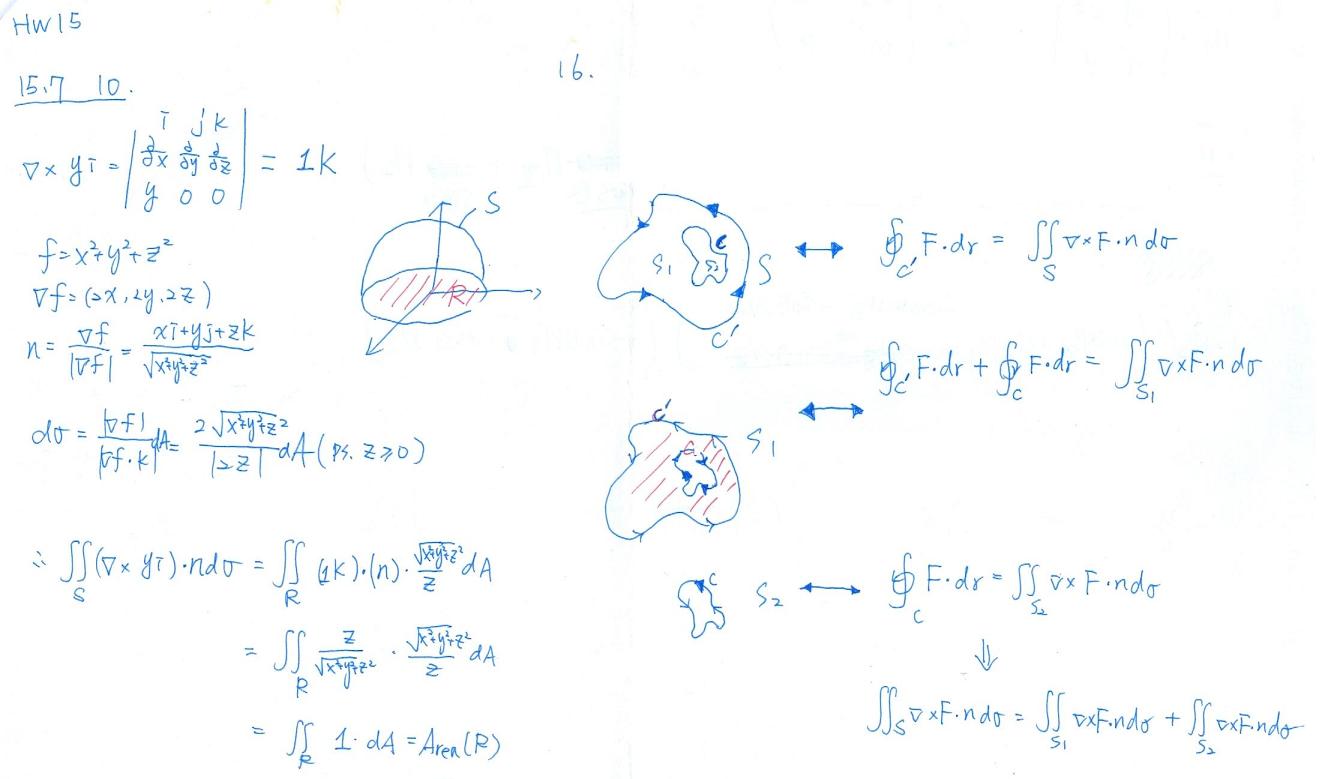 HW15
15.7 10.
∇× yi = | i j k ; ∂/∂x ∂/∂y ∂/∂z ; y 0 0 | = 1k
f=x²+y²+z²
∇f=(2x,2y,2z)
n= ∇f/|∇f| = (xi+yj+zk)/√(x²+y²+z²)
dσ = |∇f|/|∇f·k| dA = 2√(x²+y²+z²)/|2z| dA (ps. z≥0)
S
R
∴ ∬_S (∇× yi)·ndσ = ∬_R (1k)·(n)· √(x²+y²+z²)/z dA
= ∬_R z/√(x²+y²+z²) · √(x²+y²+z²)/z dA
= ∬_R 1· dA = Area(R)
16.
S₁ S₂ C S C' ↔ ∮_C' F·dr = ∬_S ∇×F·n dσ
C' C S₁ ↔ ∮_C' F·dr + ∮_C F·dr = ∬_S₁ ∇×F·n dσ
C S₂ ↔ ∮_C F·dr = ∬_S₂ ∇×F·ndσ
⇓
∬_S ∇×F·ndσ = ∬_S₁ ∇×F·ndσ + ∬_S₂ ∇×F·ndσ